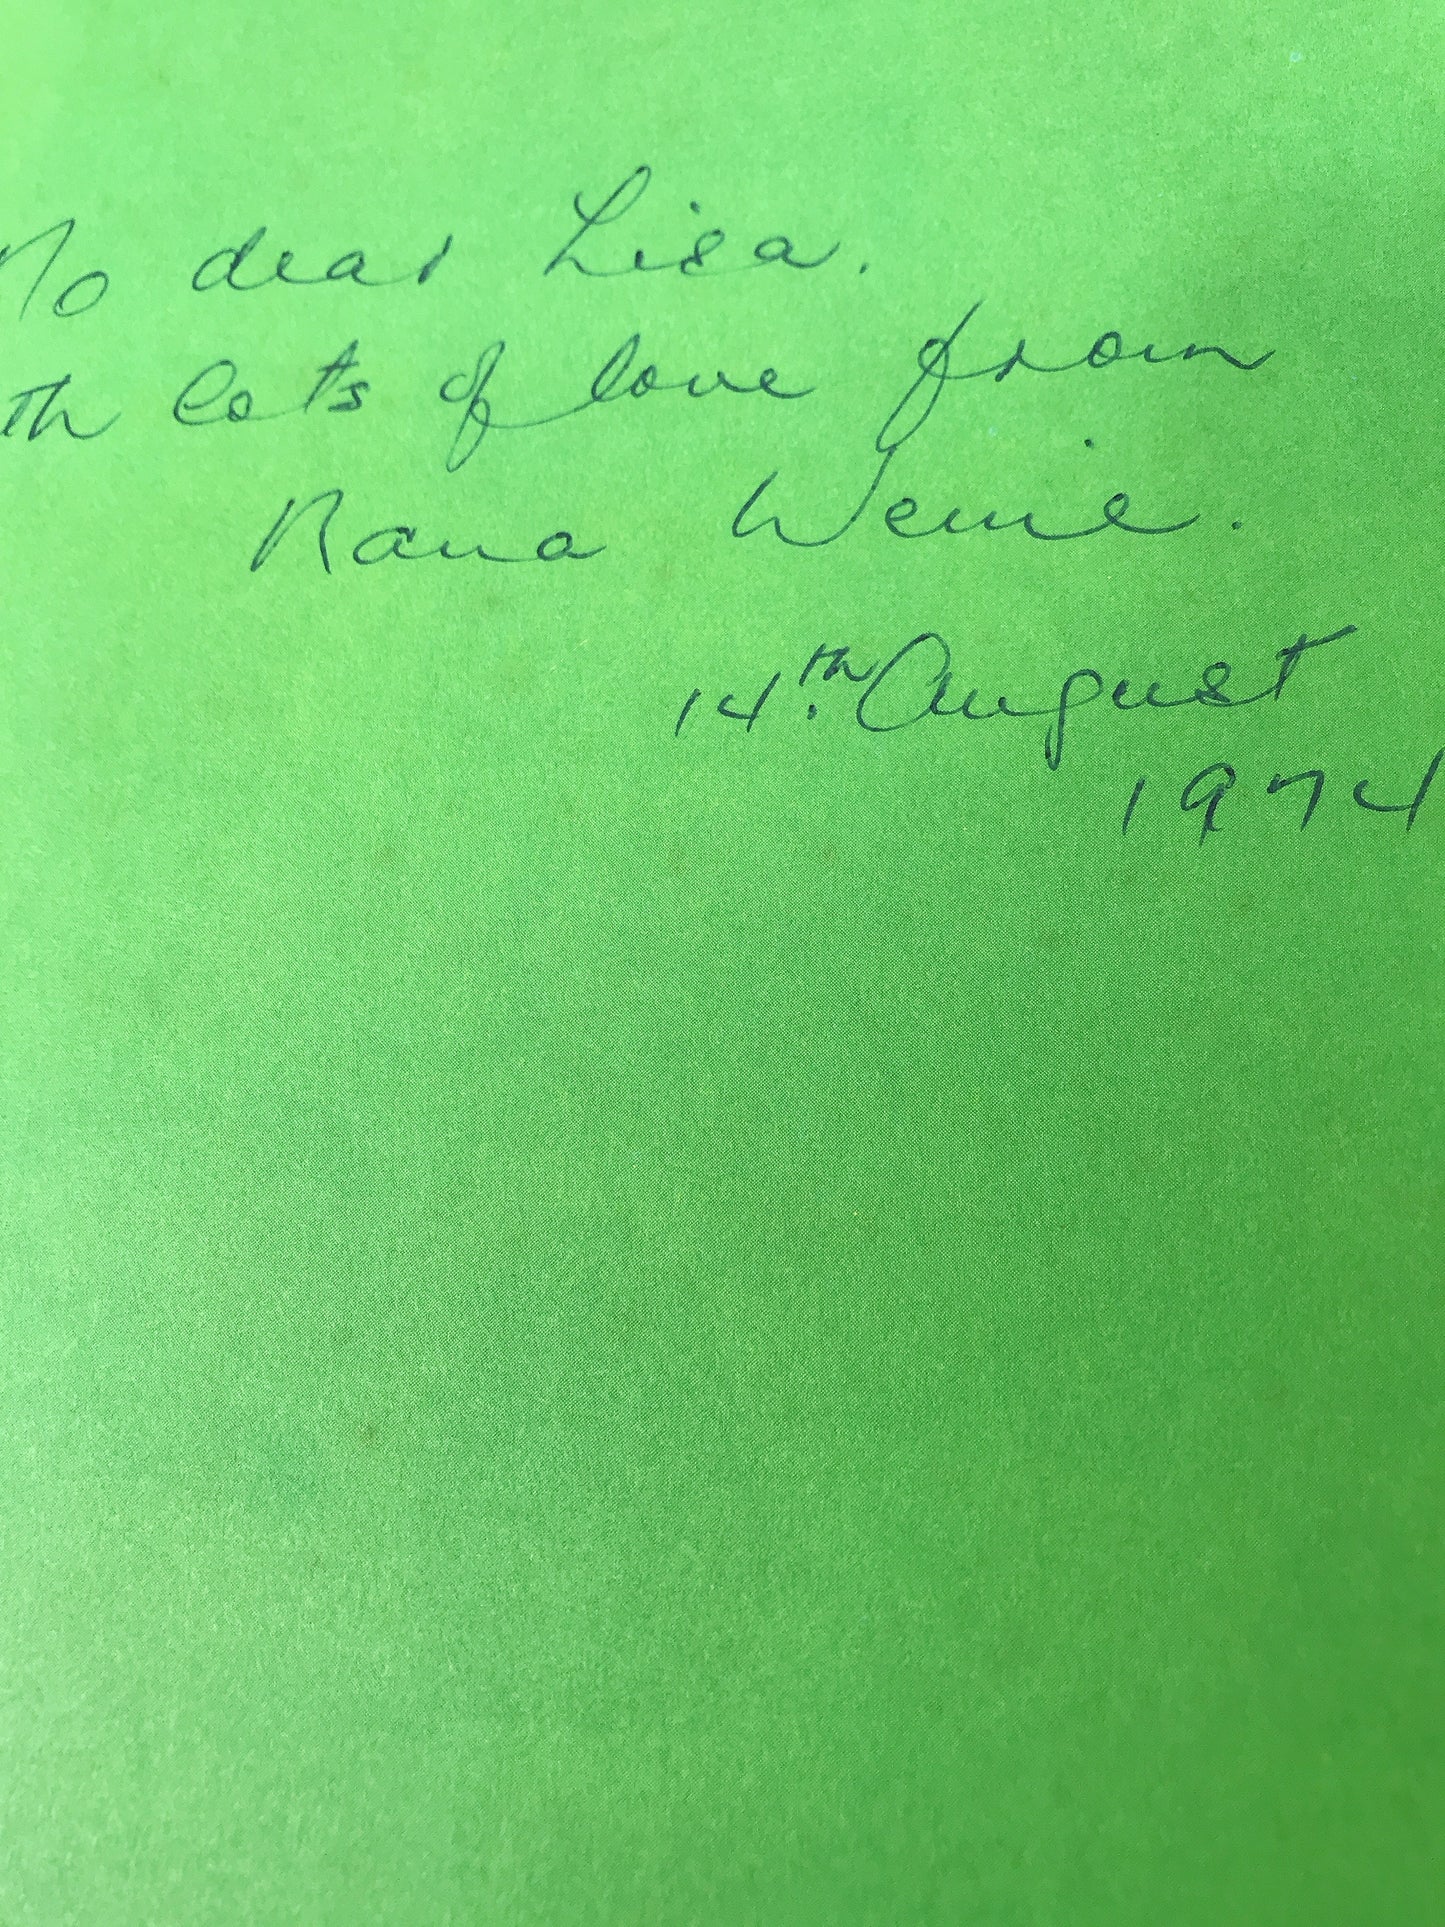 To dear Lisa.
th lots of love from
Nana
14th. August
1974